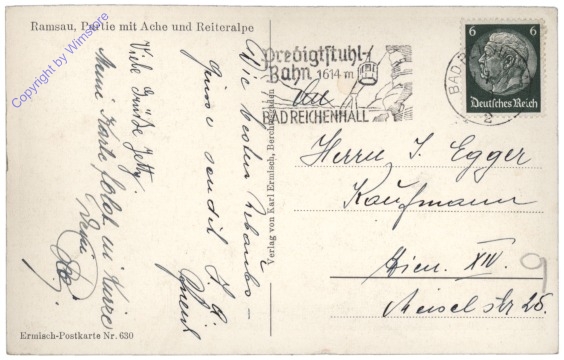 Ramsau, Partie mit Ache und Reiteralpe
Copyright by Wimstore
Die besten Urlaubs-
grüsse sendet
Viele Grüße Jetty.
Meine Karte folgt in Kürze
Ermisch-Postkarte Nr. 630
Verlag von Karl Ermisch, Berchtesgaden
Predigtstuhl-
Bahn 1614 m
BAD REICHENHALL
6 6
Deutsches Reich
BAD REICHENHALL
2
Herrn J. Egger
Kaufmann
Wien. XIV.
Meiselstr 25.
9